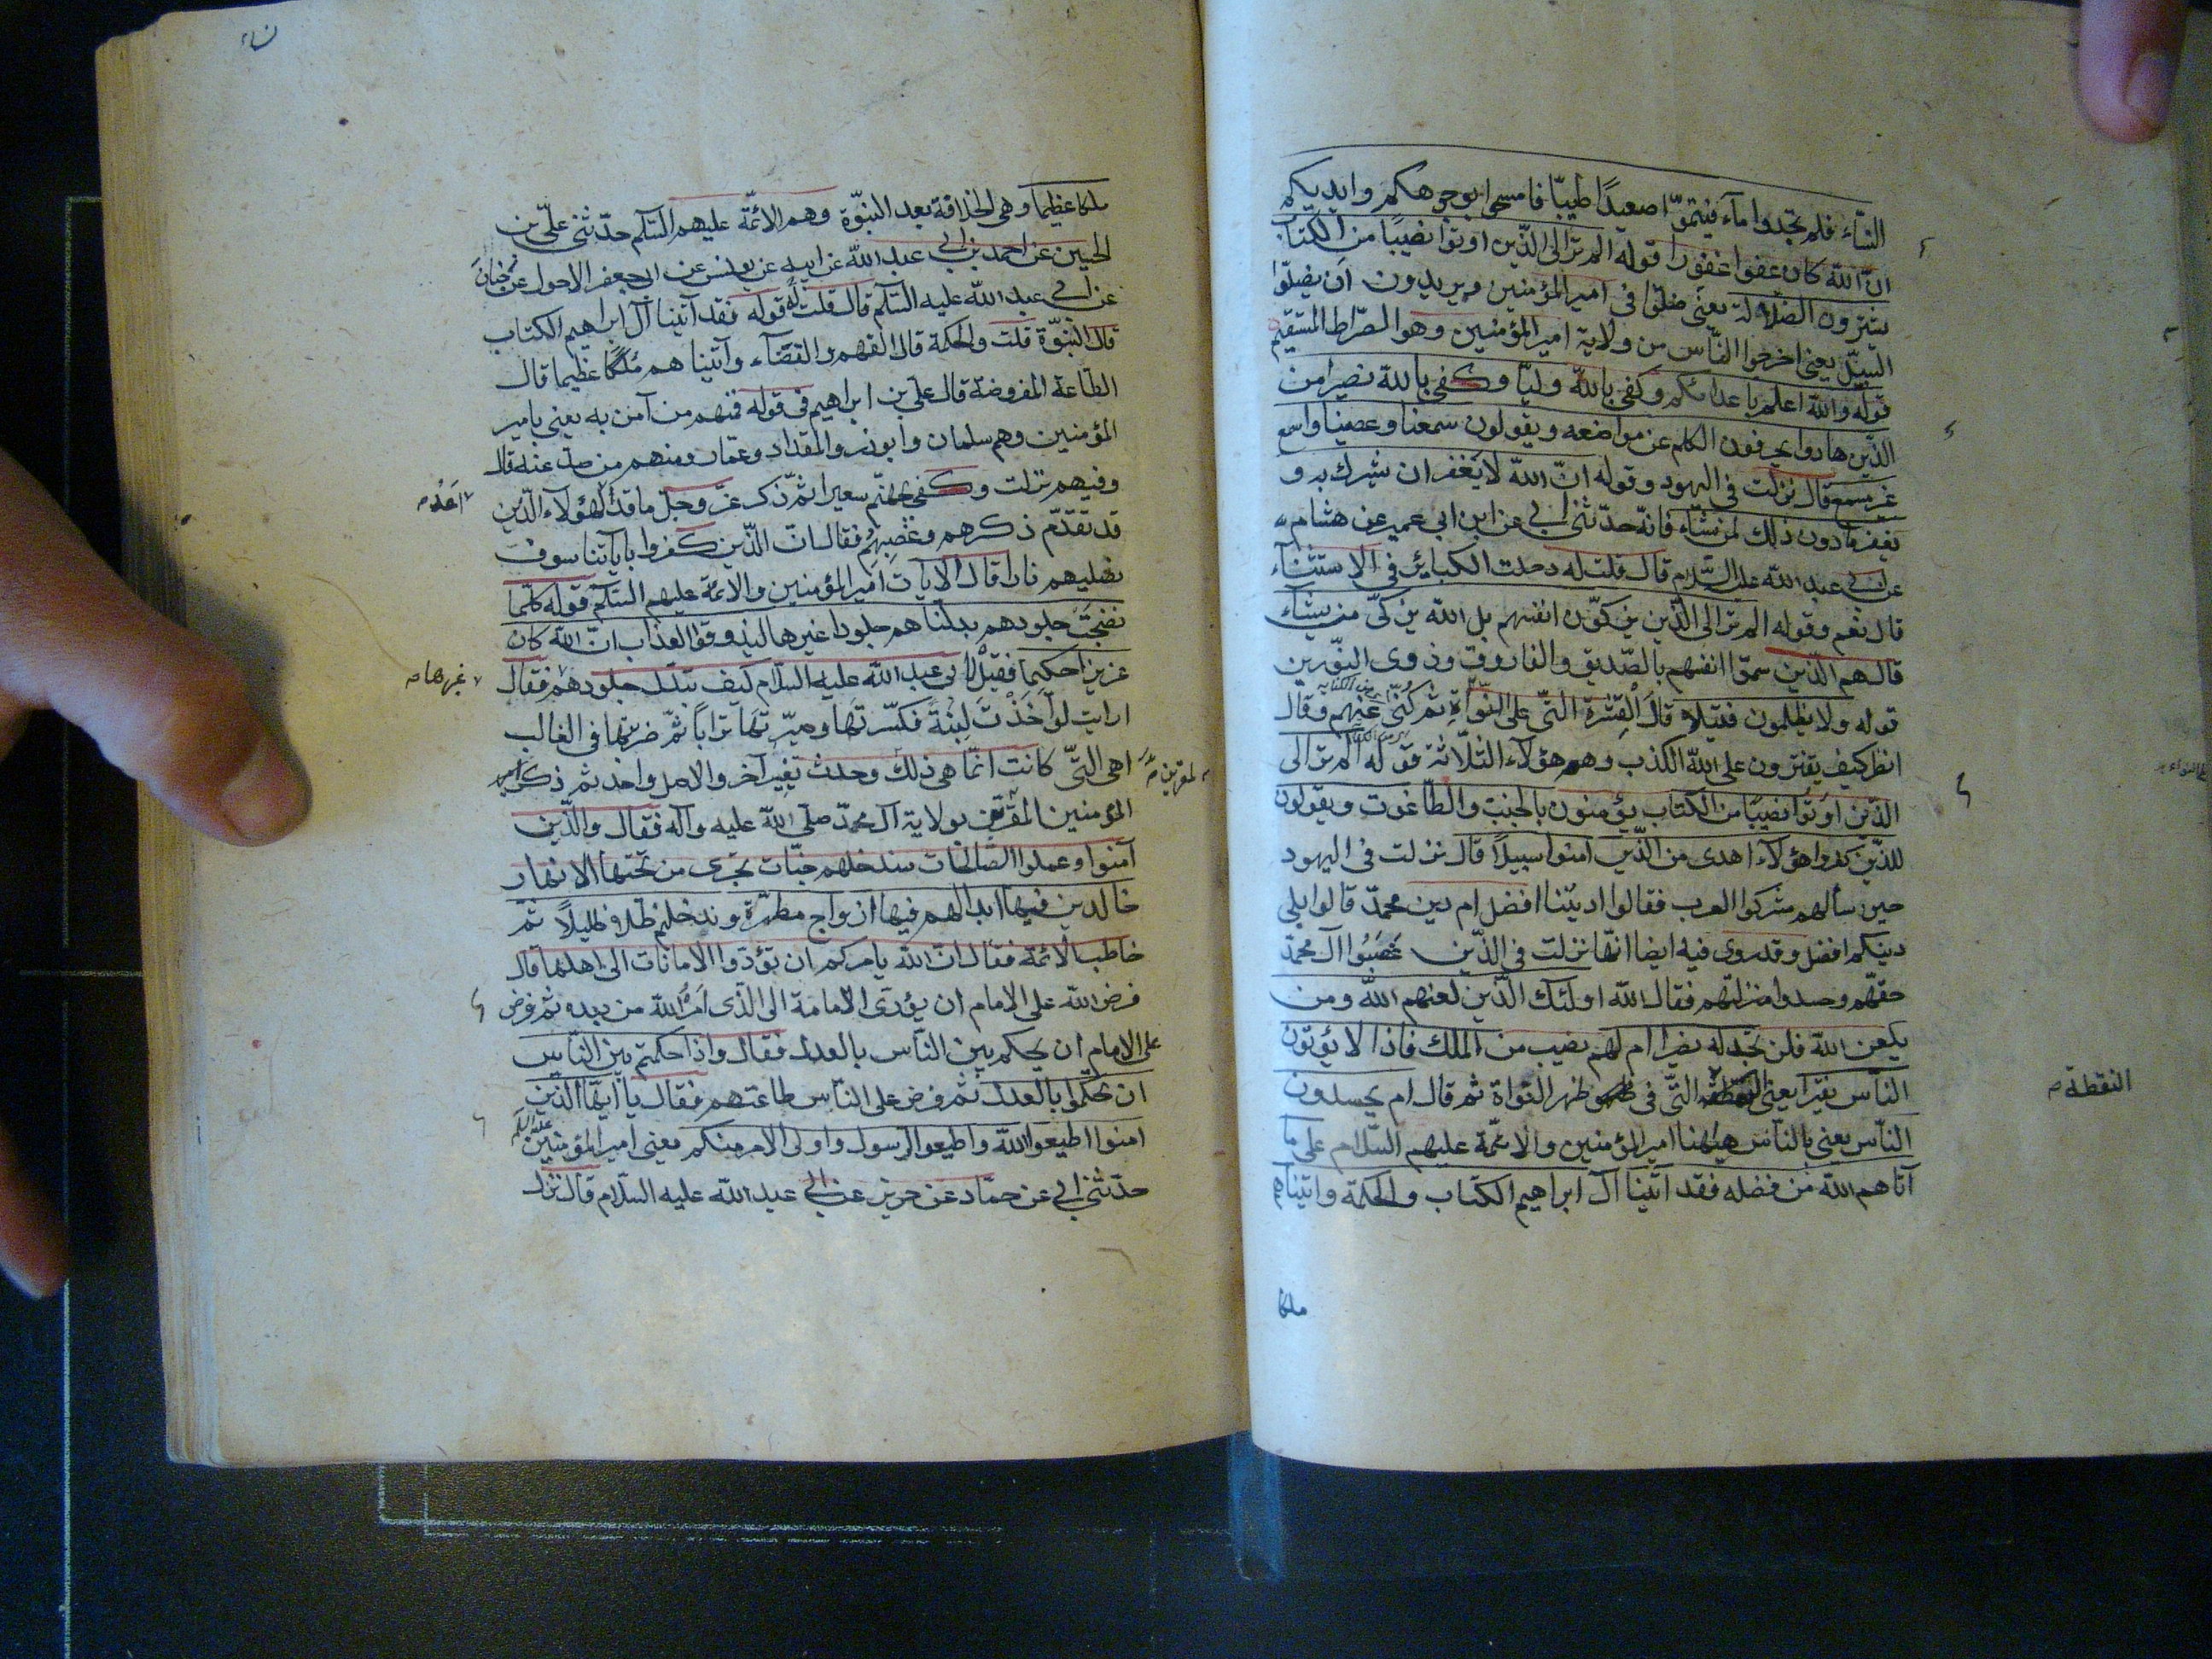 النسآء فلم تجدوا مآء فتيمموا صعيدًا طيبّا فامسحوا بوجوهكم وايديكم
انّ الله كان عفوا غفورا قوله الم تر الى الذّين اوتوا نصيبًا من الكتاب
يشترون الضلالة يعنى ضلّوا فى امير المؤمنين ويريدون ان يضلّوا
السبيل يعنى اخرجوا النّاس من ولاية امير المؤمنين وهو الصّراط المستقيم
قوله والله اعلم باعدائكم وكفى بالله وليّا وكفى بالله نصيرا من
الذّين هادوا يحرفون الكلم عن مواضعه ويقولون سمعنا وعصينا واسمع
غير مسمع قال نزلت فى اليهود وقوله انّ الله لا يغفر ان يشرك به و
يغفر مادون ذلك لمن يشآء فانّه حدّثنى ابى عن ابن ابى عمير عن هشام
عن ابى عبد الله عليه السّلام قال قلت له دخلت الكبائر فى الاستثنآء
قال نعم وقوله الم تر الى الذّين يزكوّن انفسهم بل الله يزكىّ من يشآء
قال هم الذّين سموّا انفسهم بالصّديق والفاروق وذوى النوّرين
قوله ولا يظلمون فتيلا قال القشرة التّى على النوّاة ثم كنّى عنهم وقال
انظر كيف يفترون على الله الكذب وهم هؤلآء الثلّاثة قوله الم تر الى
الذّين اوتوا نصيبًا من الكتاب يؤمنون بالجبت والطّاغوت ويقولون
للذّين كفروا هؤلآء اهدى من الذّين آمنوا سبيلًا قال نزلت فى اليهود
حين سألهم مشركوا العرب فقالوا اديننا افضل ام دين محمدّ قالوا بلى
دينكم افضل وقد روى فيه ايضا انّها نزلت فى الذّين غصبوا آل محمدّ
حقهّم وحسدوا منزلتهم فقال الله اولئك الذّين لعنهم الله ومن
يلعن الله فلن تجد له نصيرا ام لهم نصيب من الملك فاذا لا يؤتون
الناّس نقيرا يعنى النقطة التّى فى ظهر النوّاة ثم قال ام يحسدون
النقطة
الناّس يعنى بالناّس هيهنا امير المؤمنين والائمّة عليهم السّلام على ما
آتاهم الله من فضله فقد آتينا آل ابراهيم الكتاب والحكمة واتيناهم
ملكا
نساء
ملكا عظيما وهى الخلافة بعد النبوّة وهم الائمّة عليهم السّلم حدّثنى علىّ بن
الحسين عن احمد بن ابى عبد الله عن ابيه عن يونس عن ابى جعفر الاحول عن حنان
عن ابى عبد الله عليه السّلم قال قلت له قوله فقد آتينا آل ابراهيم الكتاب
قال النبوّة قلت والحكمة قال الفهم والقضآء وآتينا هم مُلكًا عظيما قال
الطّاعة المفروضة قال علىّ بن ابراهيم فى قوله فمنهم من آمن به يعنى بامير
المؤمنين وهم سلمان وابوذر والمقداد وعمّار ومنهم من صدّ عنه قال
وفيهم نزلت وكفى بجهنّم سعيرا ثمّ ذكر عزّ وجل ما قد لهؤلآء الذّين
اعدّه
قد تقدّم ذكرهم وغصبهم فقال انّ الذّين كفروا باياتنا سوف
نصليهم نارا قال الآيات امير المؤمنين والائمّة عليهم السّلم قوله كلّما
نضجت جلودهم بدلنا هم جلودا غيرها ليذوقوا العذاب انّ الله كان
عزيزا حكيما فقيل لابى عبد الله عليه السّلام كيف تبدّل جلودهم فقال
غيرها
ارايت لو اخذت لبنة فكسّرتها وصيّرتها ترابا ثمّ ضربتها فى القالب
اهى التّى كانت انمّا هى ذلك وحدث تغيير آخر والاصل واحد ثم ذكر
المؤمنين المقرّين بولاية آل محمدّ صلّى الله عليه وآله فقال والذّين
آمنوا وعملوا الصّالحات سندخلهم جنّات تجرى من تحتها الانهار
خالدين فيها ابدا لهم فيها ازواج مطهّرة وندخلهم ظلّا ظليلًا ثمّ
خاطب الائمّة فقال انّ الله يامركم ان تؤدّوا الامانات الى اهلها قال
فرض الله على الامام ان يؤدّى الامامة الى الذّى امره الله من بعده ثم فرض
على الامام ان يحكم بين الناّس بالعدل فقال واذا حكمتم بين الناّس
ان تحكموا بالعدل ثمّ فرض على الناّس طاعتهم فقال يا ايهّا الذين
امنوا اطيعوا الله واطيعوا الرسول واولى الامر منكم يعنى امير المؤمنين عليه السلم
حدّثنى ابى عن حمّاد عن حريز عن ابى عبد الله عليه السّلام قال نزل